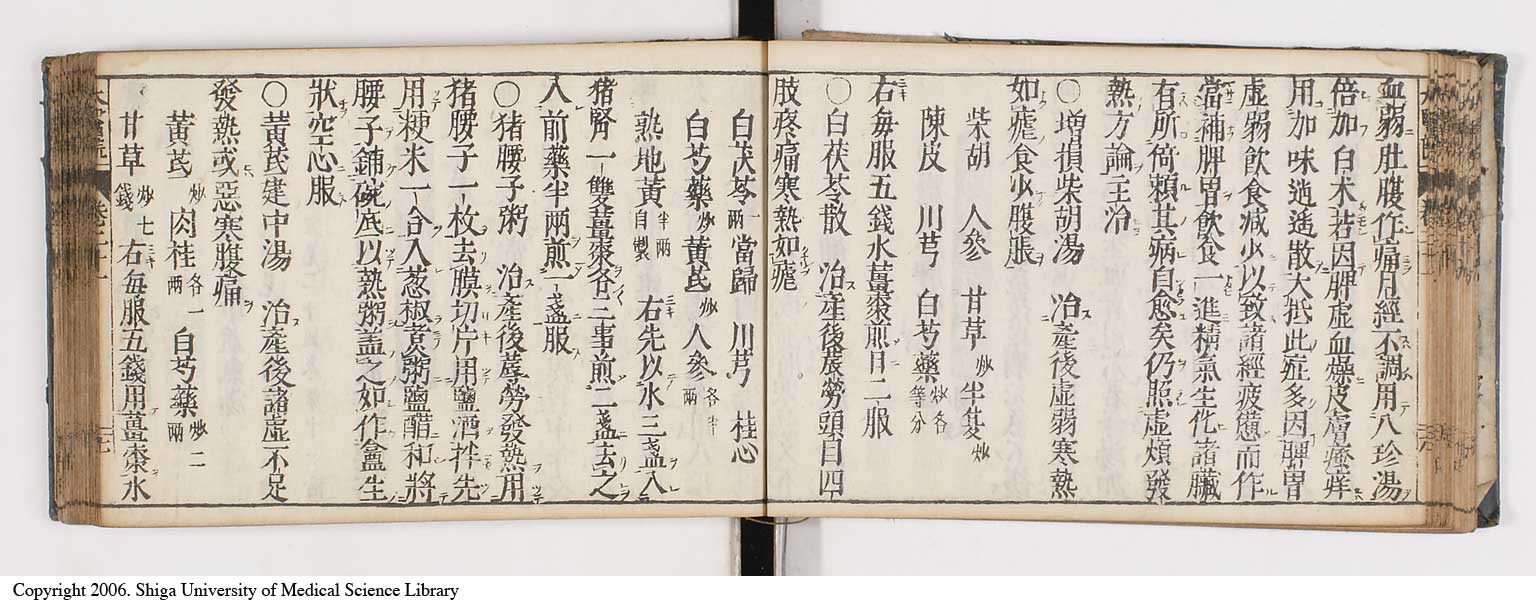 血弱肚腹作痛月經不調用八珍湯
倍加白术若因脾虛血燥皮膚瘙痒
用加味逍遙散大抵此症多因脾胃
虛弱飲食减少以致諸經疲憊而作
當補脾胃飲食一進精氣生化諸臟
有所倚賴其病自愈矣仍照虛煩發
熱方論主治
○增損柴胡湯 治產後虛弱寒熱
如瘧食少腹脹
柴胡 人參 甘草炒 半夏炒
陳皮 川芎 白芍藥炒各等分
右每服五錢水薑棗煎日二服
○白茯苓散 治產後蓐勞頭目四
肢疼痛寒熱如瘧
白茯苓一兩 當歸 川芎 桂心
白芍藥炒 黃芪炒 人參各半兩
熟地黃半兩自製 右先以水三盞入
猪腎一雙薑棗各二事煎二盞去之
入前藥半兩煎一盞服
○猪腰子粥 治產後蓐勞發熱用
猪腰子一枚去膜切片用鹽酒拌先
用粳米一合入葱椒煮粥鹽醋和將
腰子鋪碗底以熱粥盖之如作盦生
狀空心服
○黃芪建中湯 治產後諸虛不足
發熱或惡寒腹痛
黃芪炒 肉桂各一兩 白芍藥炒二兩
甘草炒七錢 右每服五錢用薑棗水
Copyright 2006. Shiga University of Medical Science Library